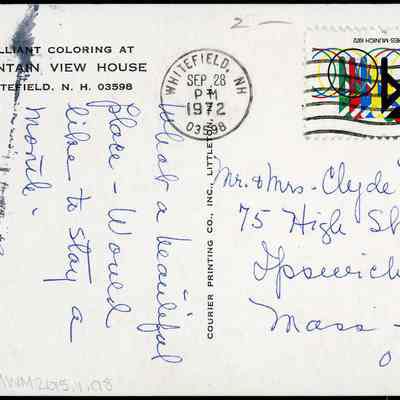 2-
LLIANT COLORING AT
NTAIN VIEW HOUSE
TEFIELD, N. H. 03598
What a beautiful
place - Would
like to stay a
month.
COURIER PRINTING CO., INC., LITTLET
WHITEFIELD, NH
SEP 28
PM
1972
03598
MES-MUNICH 1972
Mr. & Mrs - Clyde
75 High St
Ipswich
Mass -
0
MWM2015.1.98